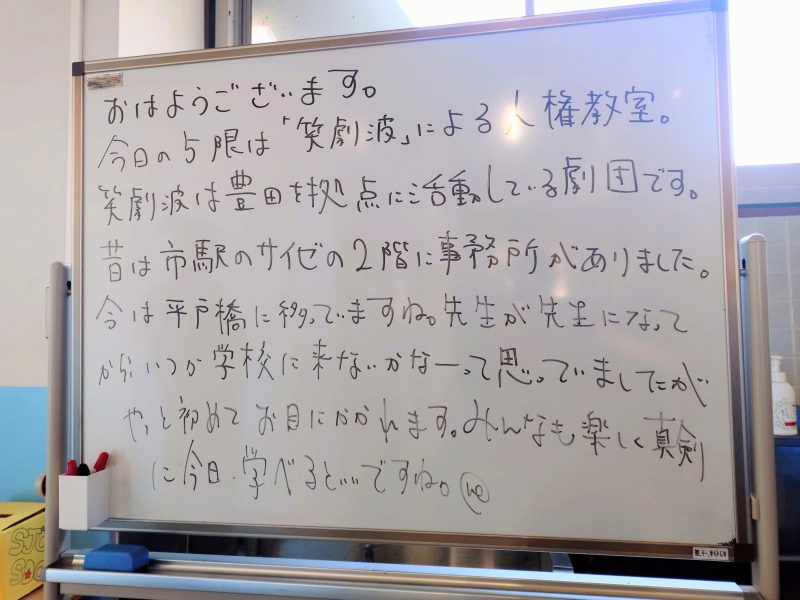 おはようございます。
今日の5限は「笑劇波」による人権教室。
笑劇波は豊田を拠点に活動している劇団です。
昔は市駅のサイゼの2階に事務所がありました。
今は平戸橋に移っていますね。先生が先生になって
からいつか学校に来ないかなーって思っていましたが
やっと初めてお目にかかれます。みんなも楽しく真剣
に今日、学べるといいですね。